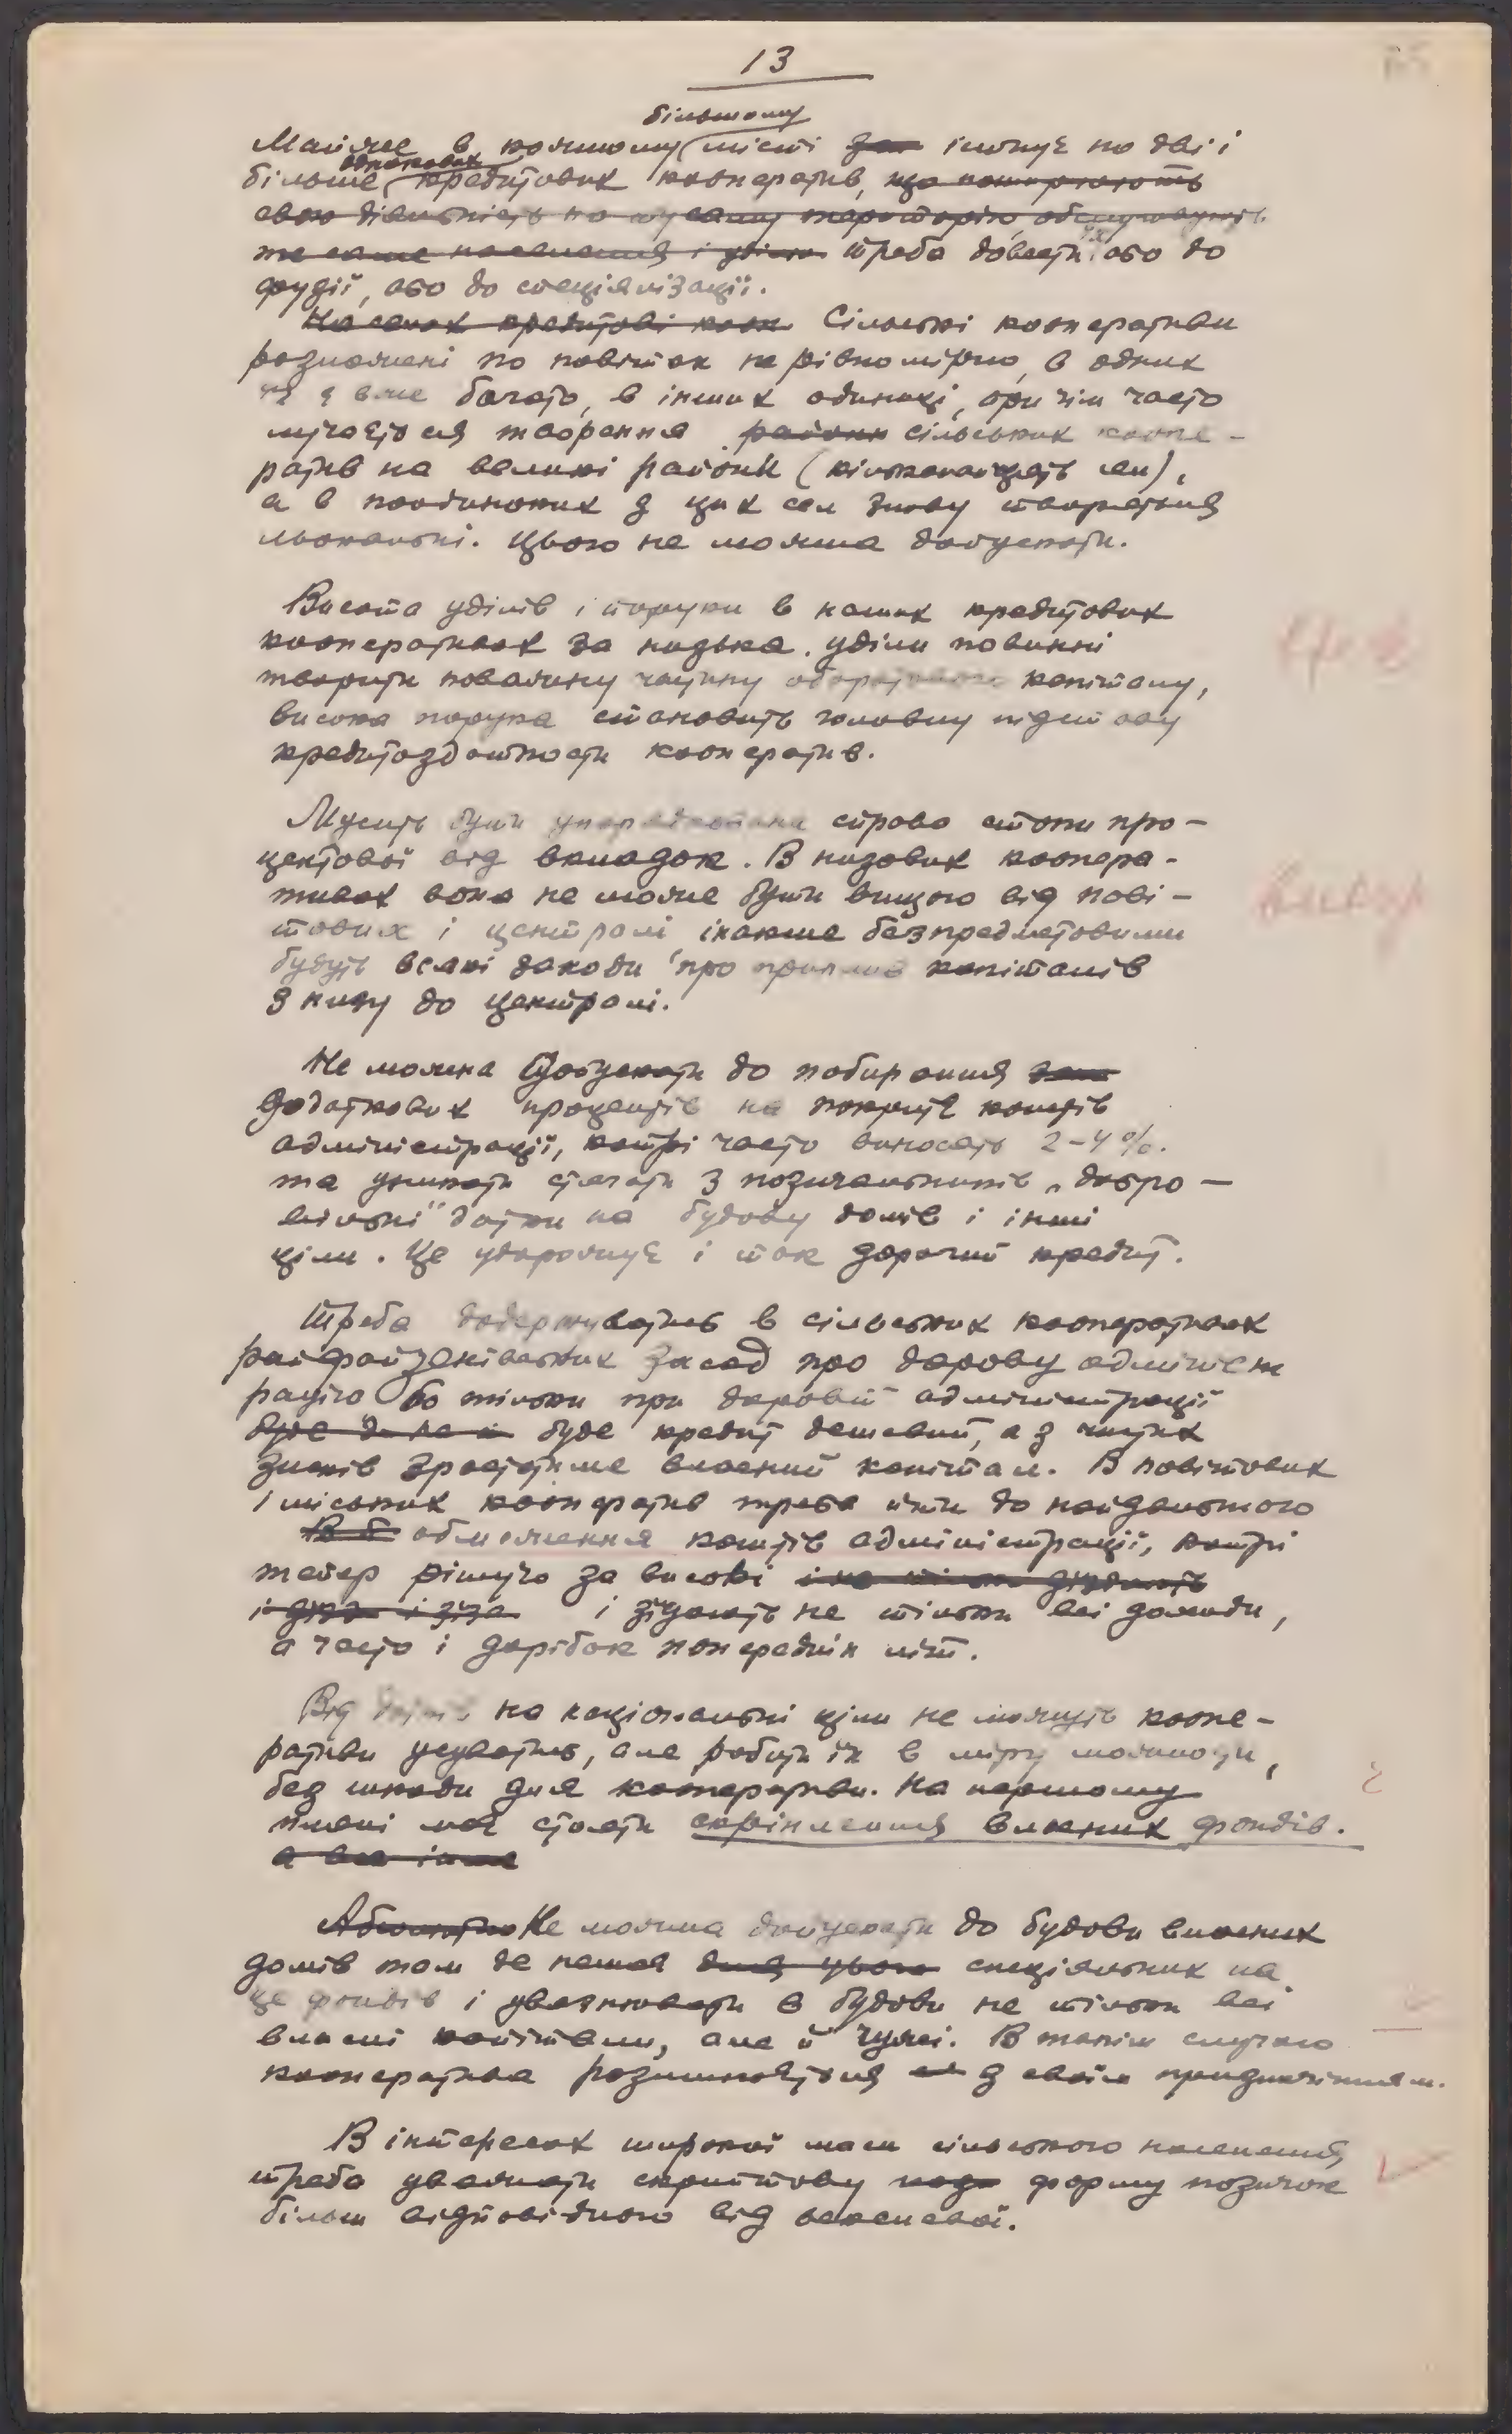 13
більшому
Майже в кожному місті за існує по дві і
однакових
більше кредитових кооператив, що поширюють
свою діяльність на ту саму територію, обслуговують
те саме населення і треба довести їх або до
фузії, або до спеціялізації.
На селах кредитові кооп. Сільські кооператив
розложені по повітах нерівномірно, в одних
їх є вже багато, в інших одиниці, при чім часто
лучається творення райони сільських коопе-
ратив на великі райони (кільканацять сел),
а в поодиноких з цих сел знову творяться
льокальні. Цього не можна допускати.
Висота уділів і поруки в наших кредитових
кооперативах за низька. Уділи повинні
творити поважну частину оборотового капіталу,
висока порука становить головну підставу
кредитоздатности кооператив.
Мусить бути упорядкована справа стопи про-
центової від вкладок. В низових коопера-
тивах вона не може бути вищою від пові-
тових і централі, інакше безпредметовими
будуть всякі заходи про приплив капіталів
з низу до централі.
Не можна допускати до побирання
додаткових процентів на покриття коштів
адміністрації, котрі часто виносять 2-4%.
та уникати стягати з позичальників „добро-
вільні" датки на будову домів і інші
ціли. Це удорожує і так дорогий кредит.
Треба додержуватись в сільських кооперативах
райфайзенівських засад про дарову адмініст
рацію бо тільки при даровій адміністрації
буде кредит дешевий, а з чистих
зисків зростатиме власний капітал. В повітових
і міських кооператив треба йти до найдальшого
В б обмеження коштів адміністрації, котрі
тепер рішучо за високі і не тільки зїдають
і зїдають не тільки всі доходи,
а часто і дорібок попередніх літ.
Від датків на національні ціли не можуть коопе-
ративи усуватись, але робити їх в міру можности,
без шкоди для кооперативи. На першому
пляні має стояти скріплення власних фондів.
а все інше
Абсолютно Не можна допускати до будови власних
домів там де немає для цього спеціяльних на
це фондів і увязнювати в будові не тільки всі
власні капітали, але й чужі. В такім случаю
кооператива розминається з своїм призначінням.
В інтересах широкої маси сільського населення,
треба уважати скриптову форму позичок
більш відповідною від векселевої.